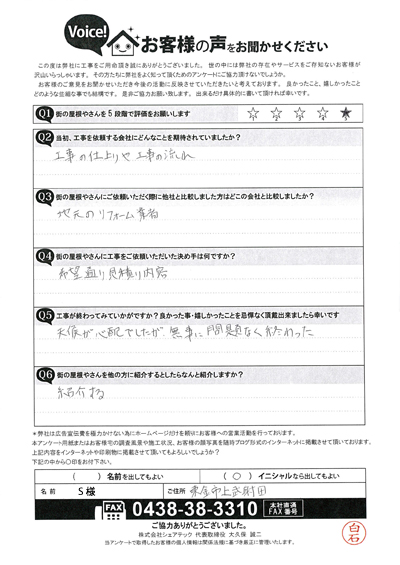 Voice!
お客様の声をお聞かせください
この度は弊社に工事をご用命頂き誠にありがとうございました。世の中には弊社の存在やサービスをご存知ないお客様が
沢山いらっしゃいます。その方たちに弊社をよく知って頂くためのアンケートにご協力頂けないでしょうか。
お客様のご意見をお聞かせいただき今後の活動に反映させていただきたいと考えております。良かったこと、嬉しかったこと
どのような些細な事でも結構です。是非ご協力お願い致します。出来るだけ具体的に書いて頂ければ幸いです。
Q1 街の屋根やさんを5段階で評価をお願いします
1 2 3 4 5
Q2 当初、工事を依頼する会社にどんなことを期待されていましたか?
工事の仕上りや工事の流れ
Q3 街の屋根やさんにご依頼いただく際に他社と比較しました方はどこの会社と比較しましたか?
地元のリフォーム業者
Q4 街の屋根やさんに工事をご依頼いただいた決め手は何ですか?
希望通り見積り内容
Q5 工事が終わってみていかがですか?良かった事・嬉しかったことを忌憚なく頂戴出来ましたら幸いです
天候が心配でしたが無事に問題なく終わった
Q6 街の屋根やさんを他の方に紹介するとしたらなんと紹介しますか?
紹介する
*弊社は広告宣伝費を極力かけない為にホームページだけを頼りにお客様への営業活動を行っております。
本アンケート用紙またはお客様宅の調査風景や施工状況、お客様の顔写真を随時ブログ形式のインターネットに掲載させて頂いております。
上記内容をインターネットや印刷物に掲載させて頂いてもよろしいでしょうか?
下記の中から〇印をお付下さい。
( ) 名前を出してもよい ( ○ ) イニシャルなら出してもよい
名前 S様 ご住所 東金市上武射田
FAX 0438-38-3310 本社直通 FAX番号
ご協力ありがとうございました。
株式会社シェアテック 代表取締役 大久保 誠二
当アンケートで取得したお客様の個人情報は関係法規に基づき厳正に管理いたします。
白石